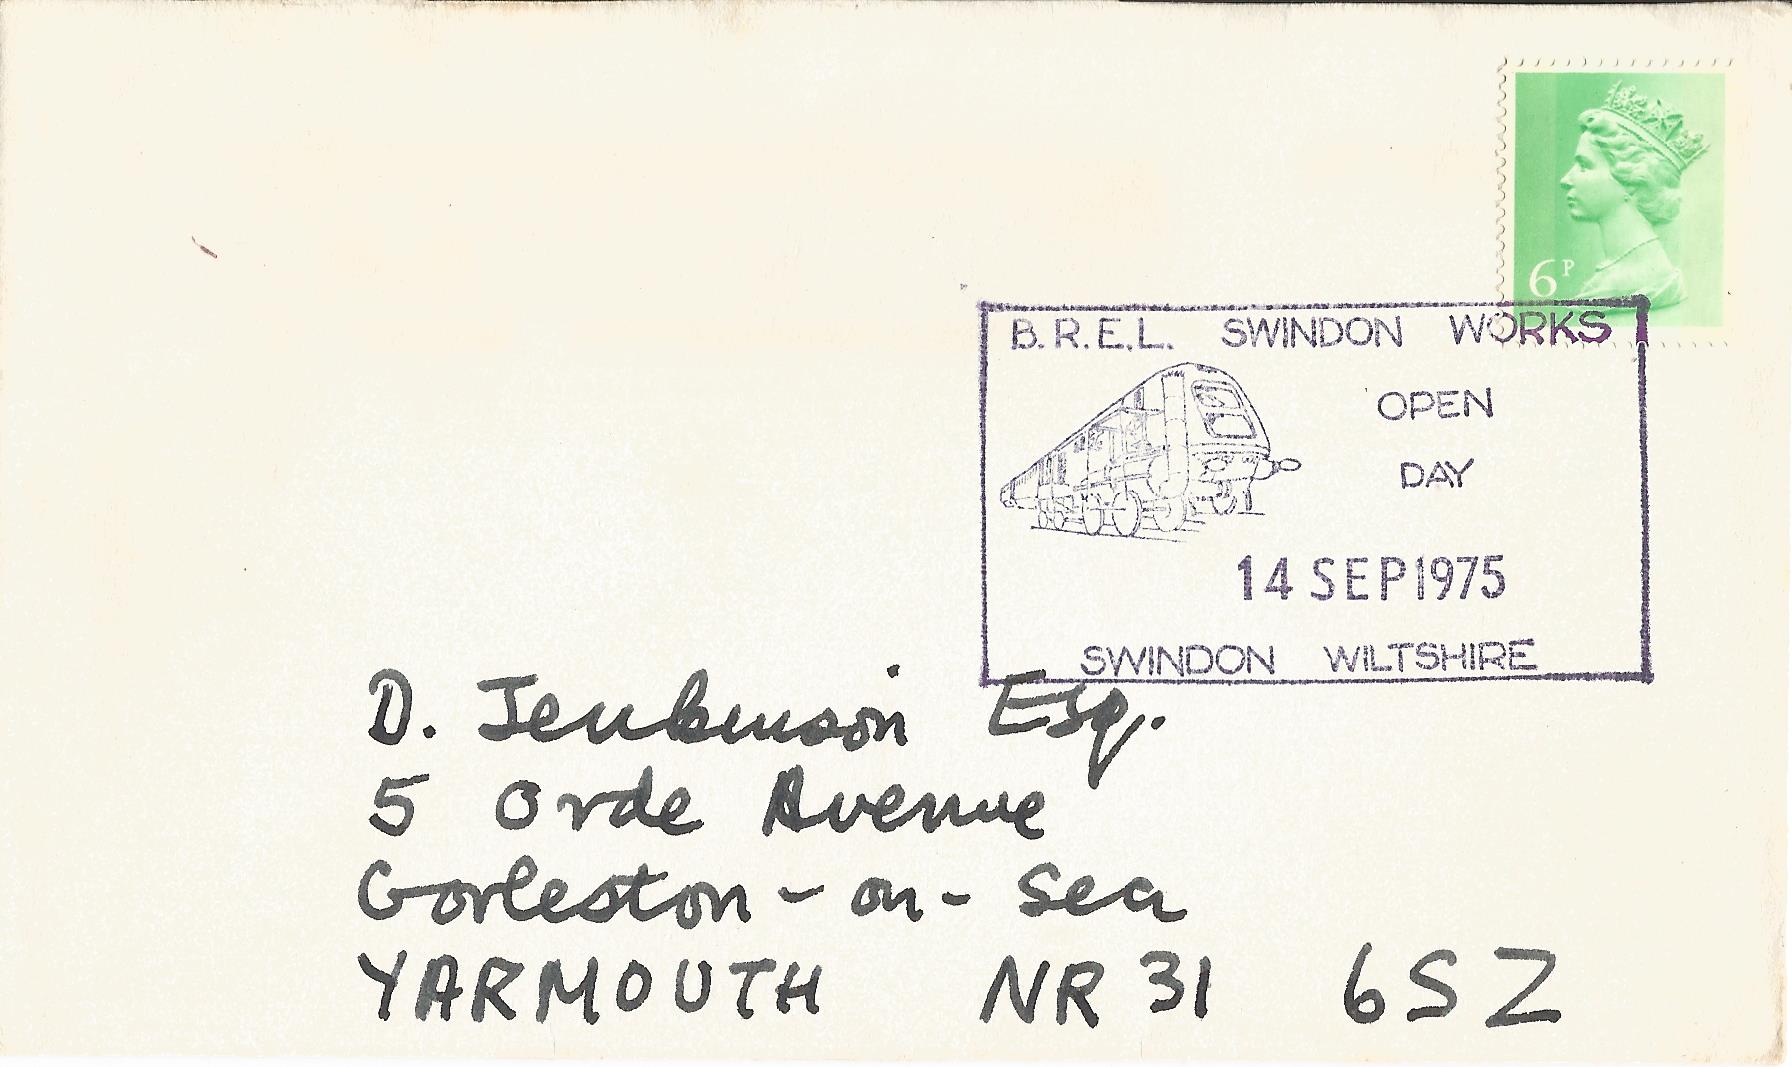 6P
B.R.E.L. SWINDON WORKS
OPEN
DAY
14 SEP 1975
SWINDON WILTSHIRE
D. Jenkinson Esq.
5 Orde Avenue
Gorleston-on-Sea
YARMOUTH NR31 6SZ